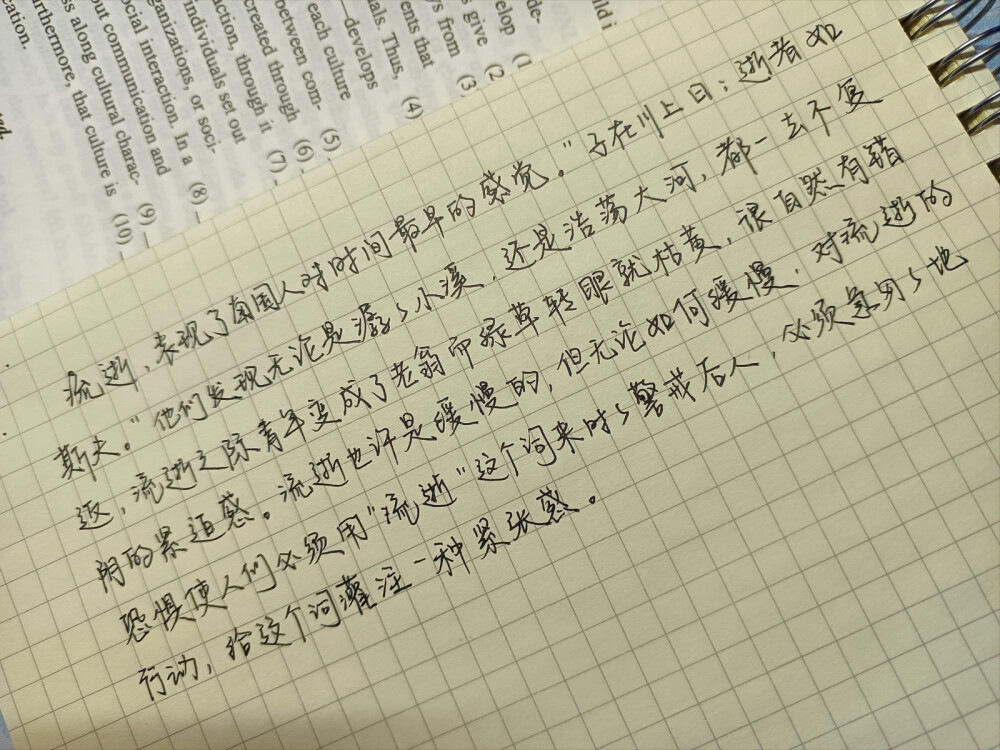 流逝，表现了南国人对时间最早的感觉。"子在川上曰：逝者如
斯夫。"他们发现无论是潺々小溪，还是浩荡大河，都一去不复
返，流逝之际青年变成了老翁而绿草转眼就枯黄，很自然有惜
阴的紧迫感。流逝也许是缓慢的，但无论如何缓慢，对流逝的
恐惧使人们必须用"流逝"这个词来时々警戒后人，必须急匆々地
行动，给这个词灌注一种紧张感。
give
from
that
Thus,
develops
each culture
between com-
created through
action, through it
individuals set out
ganizations, or soci-
ocial interaction. In a
out communication and
ss along cultural charac-
urthermore, that culture is
cation.
(3)
(4)
(5)
(6)
(7)
(8)
(9)
(10)